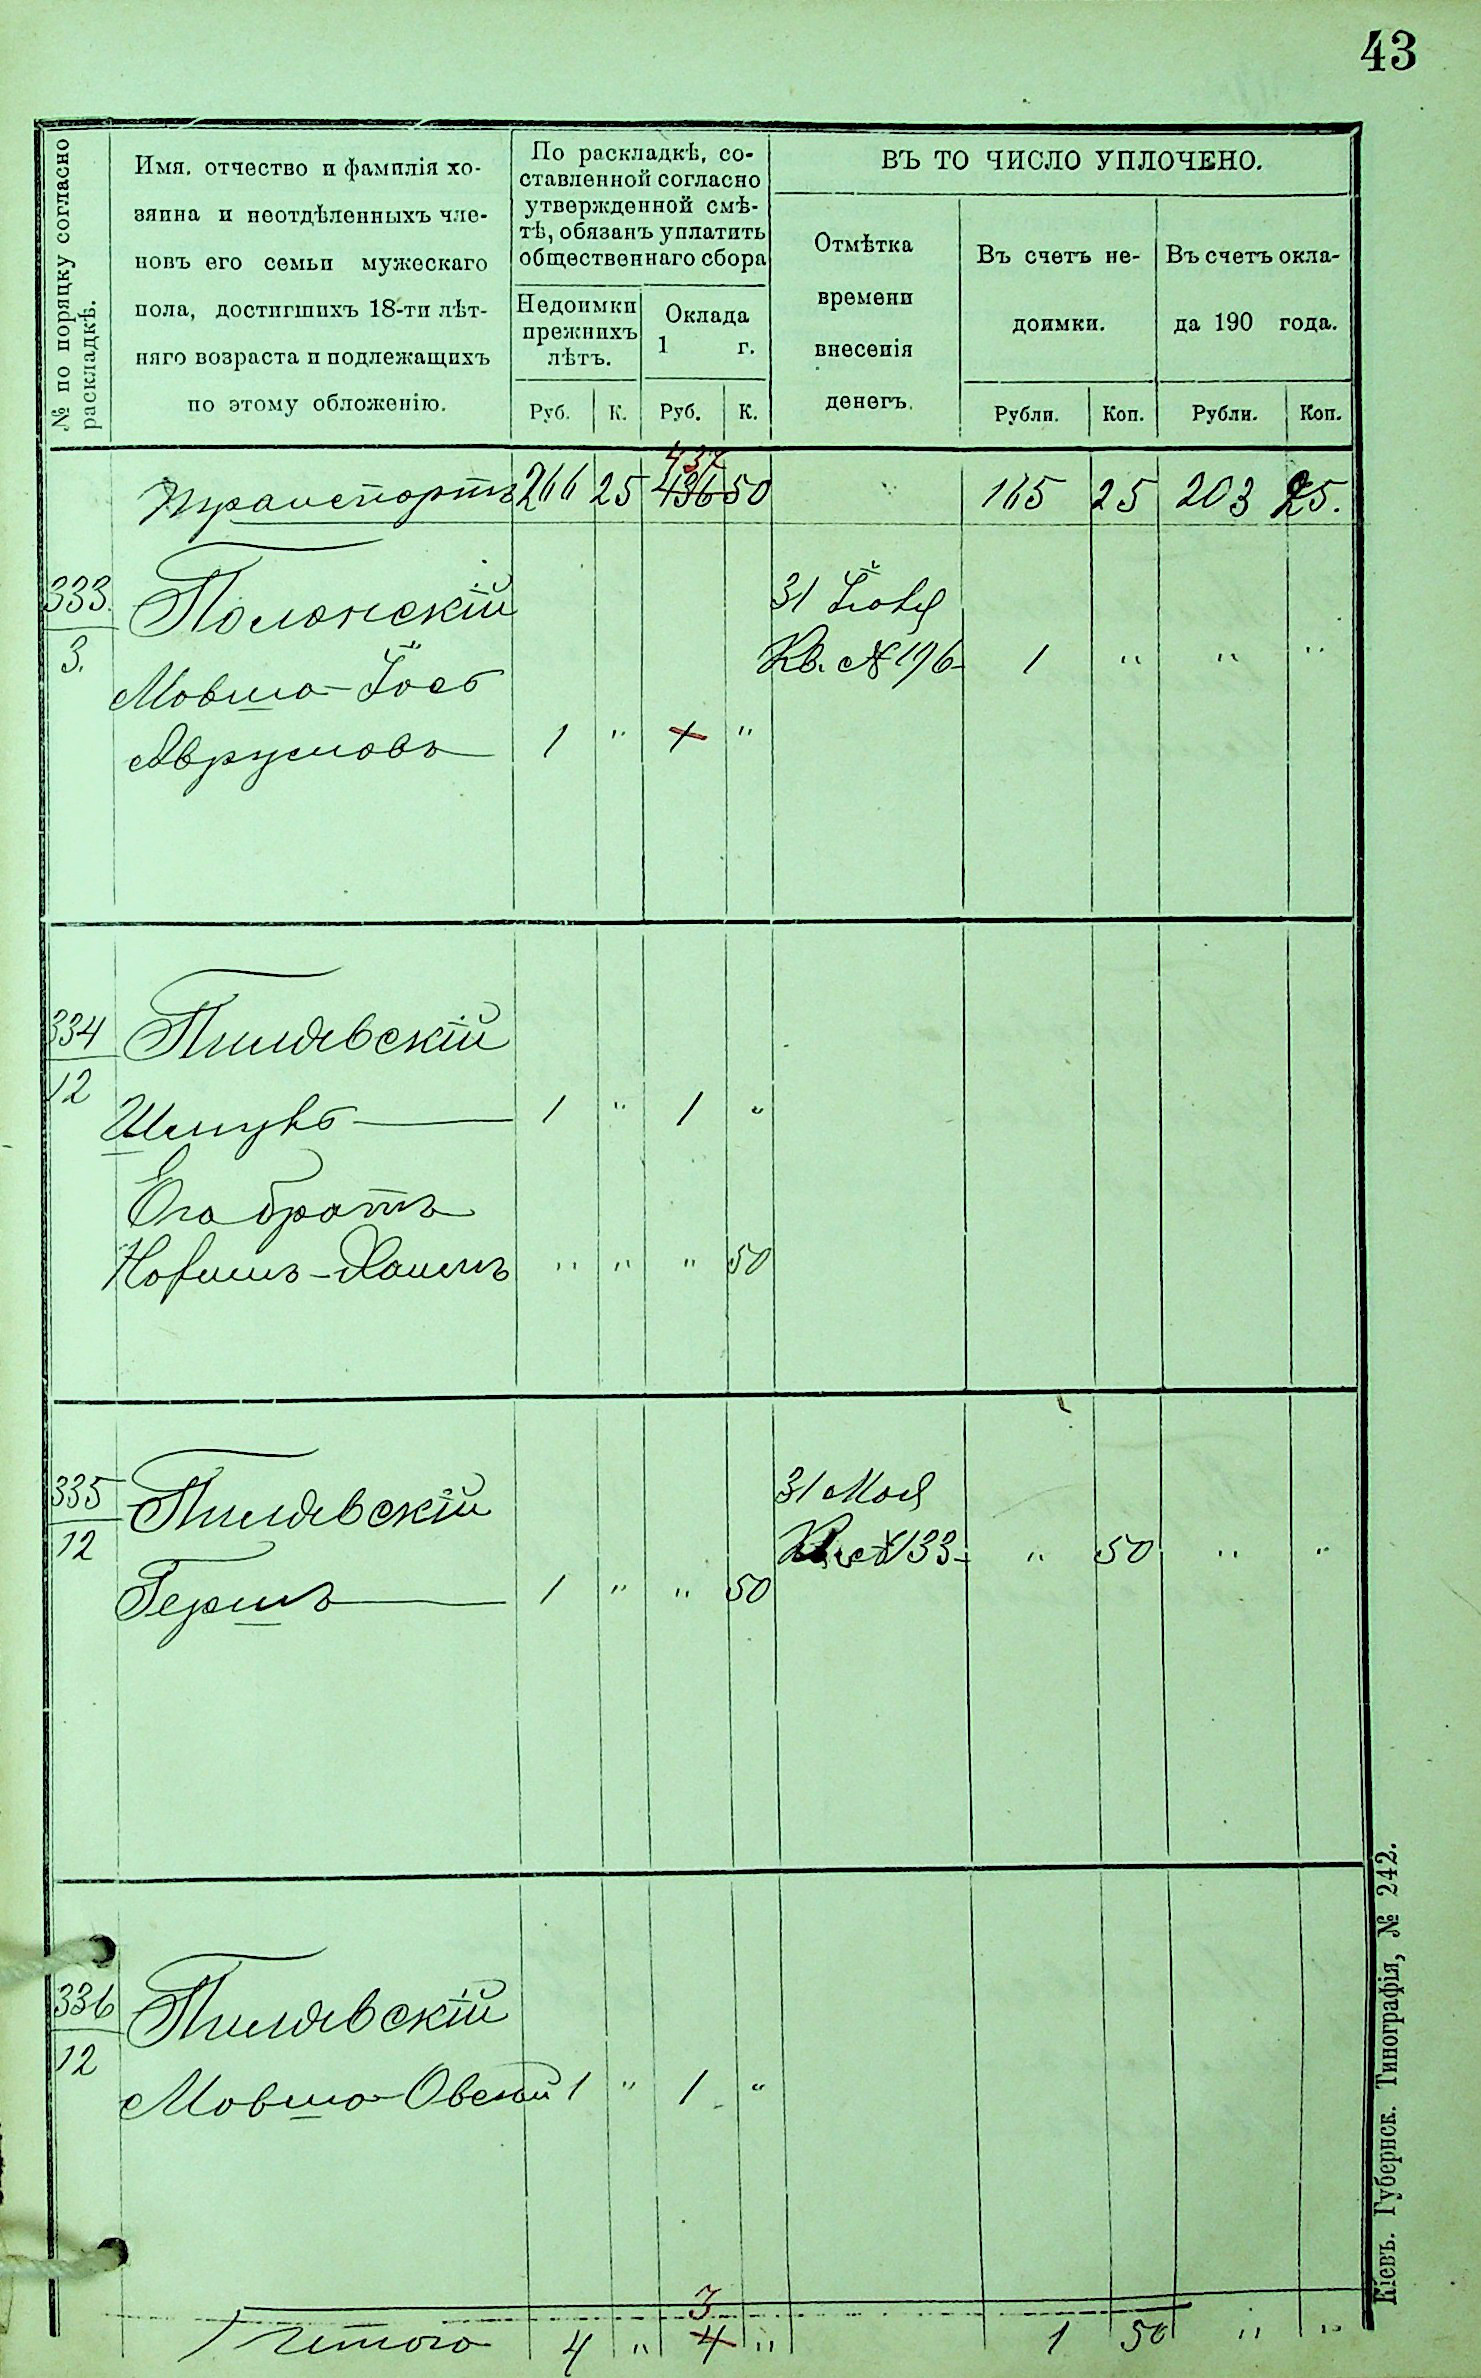 43
№ по поряцку согласно раскладкѣ.
Имя, отчество и фамилія хо-
зяина и неотдѣленныхъ чле-
новъ его семьи мужескаго
пола, достигшихъ 18-ти лѣт-
няго возраста и подлежащихъ
по этому обложенію.
По раскладкѣ, со-
ставленной согласно
утвержденной смѣ-
тѣ, обязанъ уплатить
общественнаго сбора
Недоимки
прежнихъ
лѣтъ.
Оклада
1 г.
Руб. К. Руб. К.
ВЪ ТО ЧИСЛО УПЛОЧЕНО.
Отмѣтка
времени
внесенія
денегъ.
Въ счетъ не-
доимки.
Въ счетъ окла-
да 190 года.
Рубли. Коп. Рубли. Коп.
437
Транспортъ 266 25 436 50 165 25 203 25.
333.
3.
Полонскій
31 Іюля
Кв. № 196 1 " " "
Мовша-Іось
Аврумовъ 1 " 1 "
334
12
Пилявскій
Шмуль 1 " 1 "
Его братъ
Нохимъ-Хаимъ " " " 50
335
12
Пилявскій
31 Мая
Кв. № 133 " 50 " "
Гершъ 1 " " 50
336
12
Пилявскій
Мовша Овсей 1 " 1 "
3
Итого 4 " 4 " 1 50 " "
Кіевъ. Губернск. Типографія, № 242.